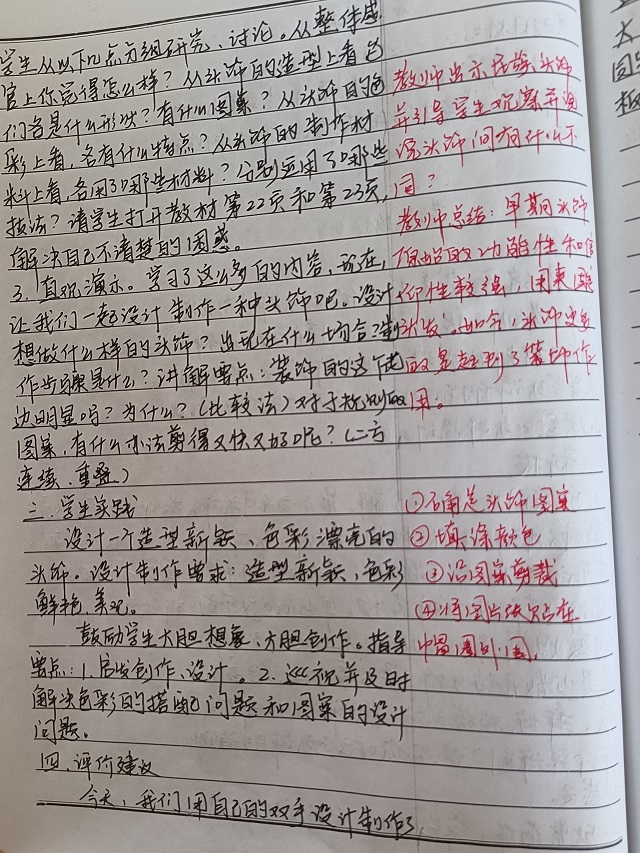 学生从以下几点分组研究、讨论。从整体感
官上你觉得怎么样？从头饰的造型上看它
们各是什么形状？有什么图案？从头饰的色
彩上看，各有什么特点？从头饰的制作材
料上看，各用了哪些材料？分别运用了哪些
技法？请学生打开教材第22页和第23页，
解决自己不清楚的困惑。
3. 直观演示。学习了这么多的内容，现在，
让我们一起设计制作一种头饰吧。设计
想做什么样的头饰？出现在什么场合？制
作步骤是什么？讲解要点：装饰的这个花
边明显吗？为什么？（比较法）对于规则的
图案，有什么办法剪得又快又好呢？（二方
连续、重叠）
三、学生实践
设计一个造型新颖、色彩漂亮的
头饰。设计制作要求：造型新颖，色彩
鲜艳，美观。
鼓励学生大胆想象，大胆创作。指导
要点：1.启发创作、设计。2.巡视并及时
解决色彩的搭配问题和图案的设计
问题。
四、评价建议
今天，我们用自己的双手设计制作了
教师出示民族头饰
并引导学生观察并说
说头饰间有什么不
同？
教师总结：早期头饰
原始的功能性和信
仰性较强，用来
束发。如今，头饰更多
的是起到了装饰作
用。
①石角定头饰图案
②填涂颜色
③沿图案剪裁
④将图片纸贴在
帽圈外围。